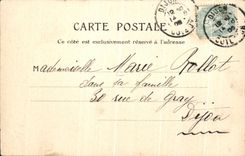 CARTE POSTALE
Ce côté est exclusivement réservé à l'adresse
DIJON
Mademoiselle Marie Pollot
dans sa famille
30 rue de Gray
Dijon